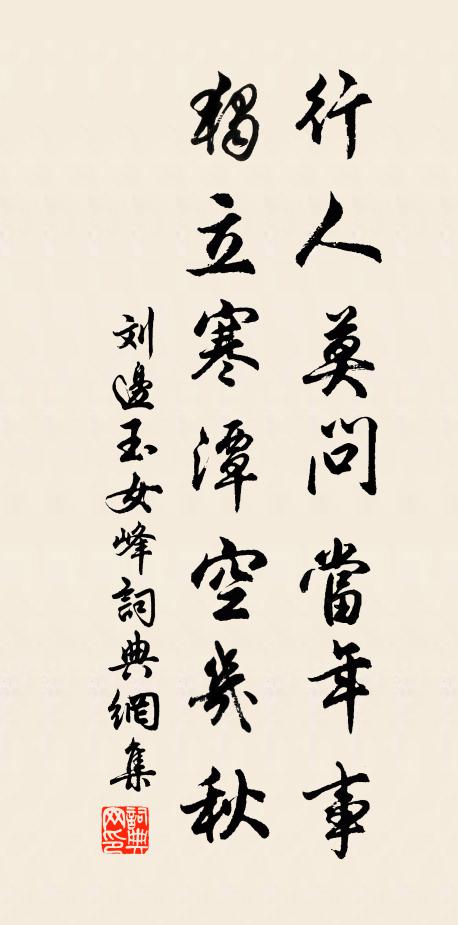 行人莫問當年事
獨立寒潭空幾秋
刘邊玉女峰詞典網集
詞典网印